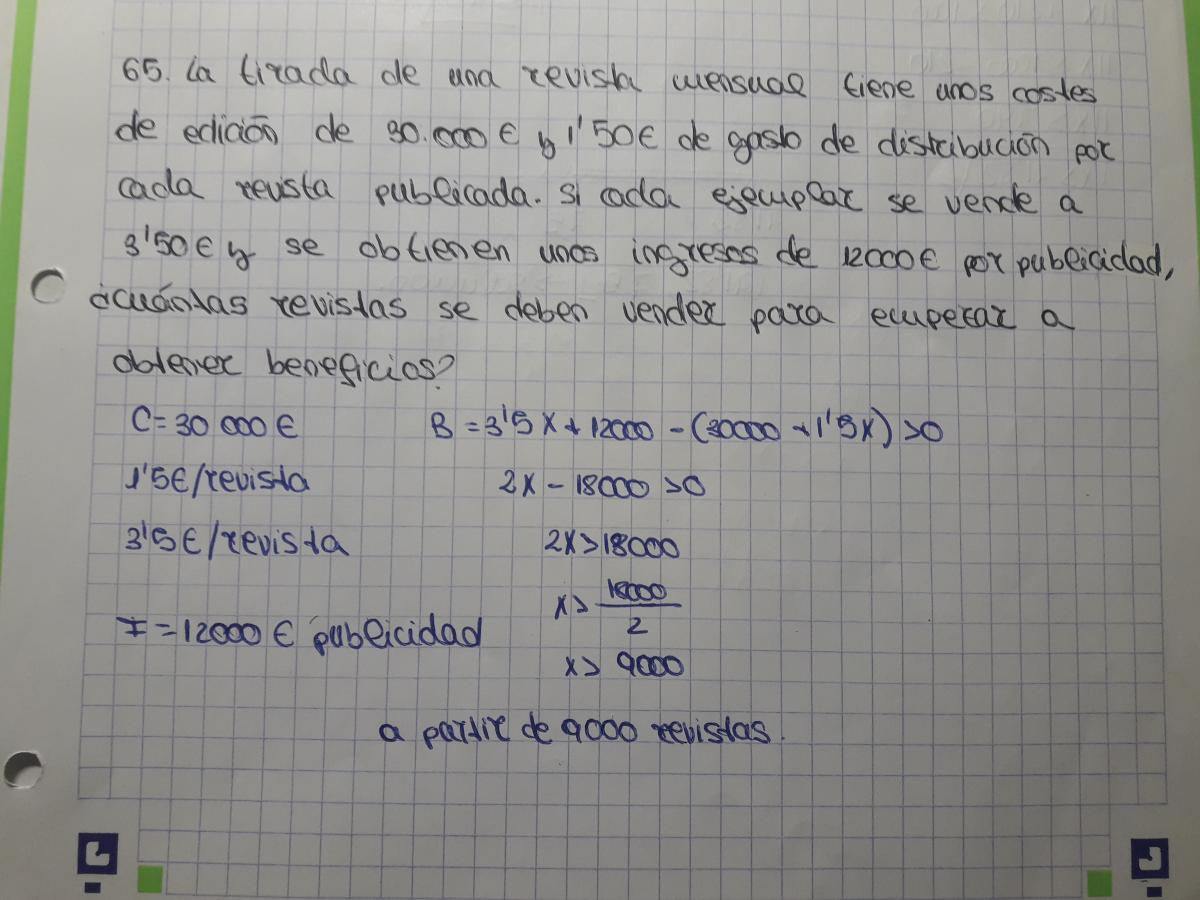 65. La tirada de una revista mensual tiene unos costes
de edición de 30.000 € y 1'50€ de gasto de distribución por
cada revista publicada. Si cada ejemplar se vende a
3'50€ y se obtienen unos ingresos de 12000€ por publicidad,
¿cuántas revistas se deben vender para empezar a
obtener beneficios?
C=30 000 € B = 3'5x + 12000 - (30000 + 1'5x) >0
1'5€/revista 2x - 18000 >0
3'5€/revista 2x > 18000
x > 18000
2
I = 12000 € publicidad
x > 9000
a partir de 9000 revistas.